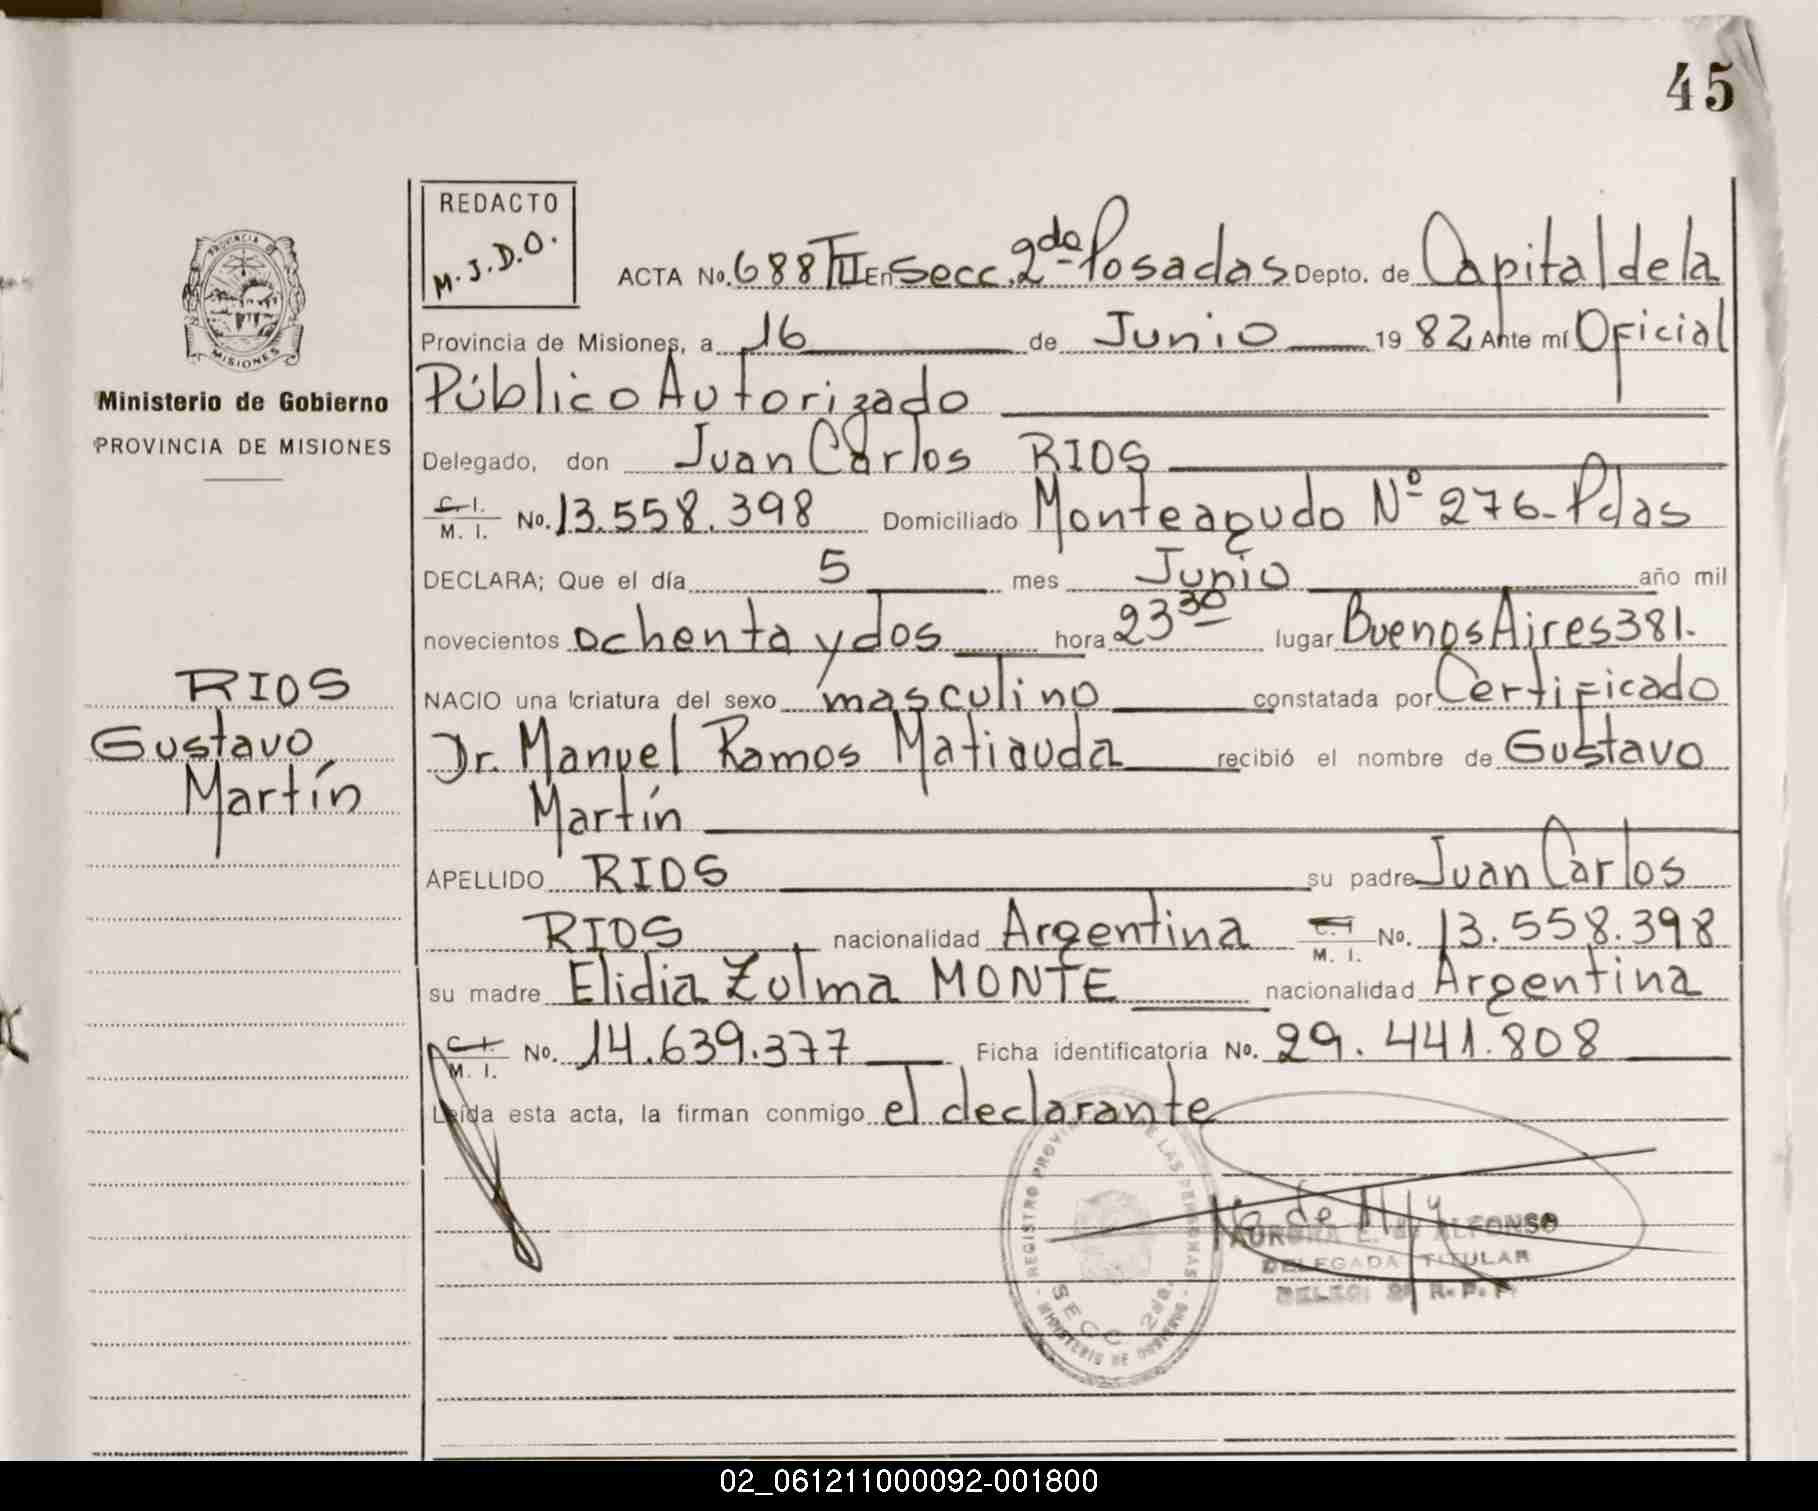 45
REDACTO
M.J.D.O.
ACTA No. 688 TII En Secc. 2da Posadas Depto. de Capital de la
Provincia de Misiones, a 16 de Junio 19 82, Ante mí Oficial
Público Autorizado
Delegado, don Juan Carlos RIOS
C.I.
M. I. No. 13.558.398 Domiciliado Monteagudo Nº 276- Pdas
DECLARA; Que el día 5 mes Junio año mil
novecientos ochenta y dos hora 23 30 lugar Buenos Aires 381.
NACIO una criatura del sexo masculino constatada por Certificado
Dr. Manuel Ramos Matiauda recibió el nombre de Gustavo
Martín
APELLIDO RIOS su padre Juan Carlos
RIOS, nacionalidad Argentina C.I. M. I. No. 13.558.398
su madre Elidia Zulma MONTE nacionalidad Argentina
C.I. M. I. No. 14.639.377 Ficha identificatoria No. 29.441.808
Leída esta acta, la firman conmigo el declarante
PROVINCIA DE
MISIONES
Ministerio de Gobierno
PROVINCIA DE MISIONES
RIOS
Gustavo
Martín
REGISTRO PROVINCIAL DE LAS PERSONAS
SECC 2da.
MINISTERIO DE GOBIERNO
AURORA E. de ALFONSO
DELEGADA TITULAR
DELEG. 2ª R.P.P.
02_061211000092-001800